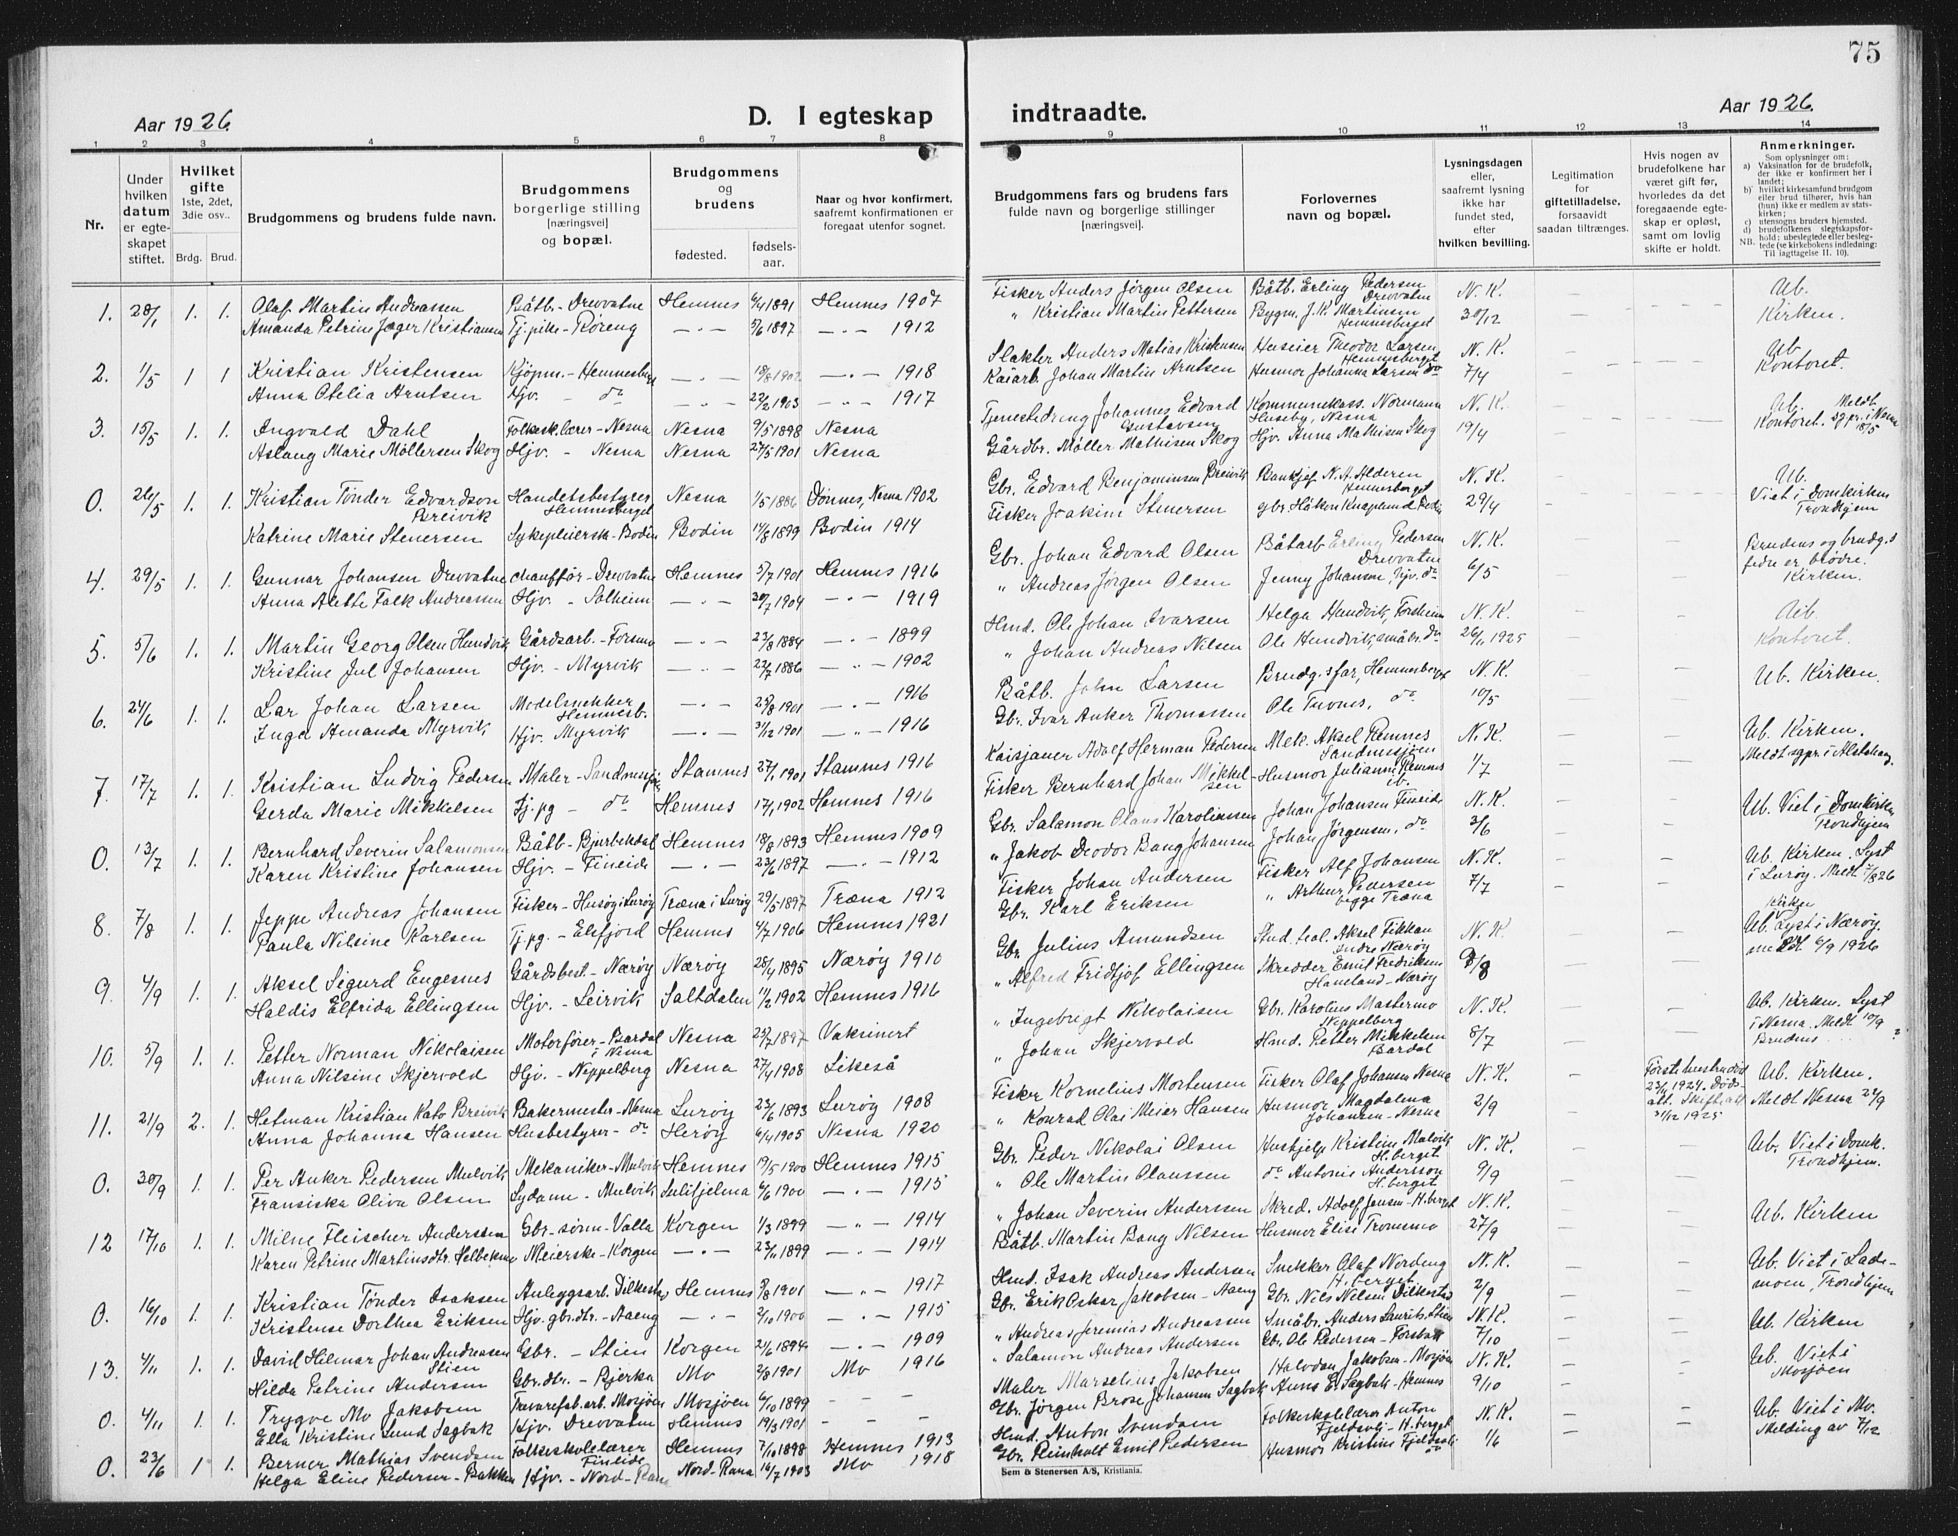 75
Aar 1926.
D. I egteskap
indtraadte.
Aar 1926.
1 2 3 4 5 6 7 8 9 10 11 12 13 14
Nr.
Under hvilken datum er egte-skapet stiftet.
Hvilket gifte 1ste, 2det, 3die osv..
Brdg. Brud.
Brudgommens og brudens fulde navn.
Brudgommens borgerlige stilling [næringsvei] og bopæl.
Brudgommens og brudens
fødested.
fødsels-aar.
Naar og hvor konfirmert, saafremt konfirmationen er foregaat utenfor sognet.
Brudgommens fars og brudens fars fulde navn og borgerlige stillinger [næringsvei].
Forlovernes navn og bopæl.
Lysningsdagen eller, saafremt lysning ikke har fundet sted, efter hvilken bevilling.
Legitimation for giftetilladelse. forsaavidt saadan tiltrænges.
Hvis nogen av brudefolkene har været gift før, hvorledes da det foregaaende egte-skap er opløst, samt om lovlig skifte er holdt.
Anmerkninger.
Som oplysninger om:
a) Vaksination for de brudefolk, der ikke er konfirmert her i landet;
b) hvilket kirkesamfund brudgom eller brud tilhører, hvis han (hun) ikke er medlem av stats-kirken;
c) utensogns bruders hjemsted.
d) brudefolkenes slegtskapsfor-hold: ubeslegtede eller besleg-tede (se kirkebokens indledning: Til iagttagelse II. 10).
NB.
1. 28/1 1. 1. Olaf Martin Andreassen Båtb. - Drevvatne Hemnes 6/4 1891 Hemnes 1907 Fisker Anders Jørgen Olsen Båtb. Erling Pedersen Drevvatne N. K. Ub.
Amanda Petrine Jæger Kristiansen Tj.pike - Røreng — " — 5/6 1897 — " — 1912 " Kristian Martin Pettersen Bygm. J. K. Martinsen Hemnesberget 30/12 Kirken.
2. 1/5 1 1 Kristian Kristensen Kjøpm. - Hemnesberget — " — 18/8 1902 — " — 1918 Slakter Anders Matias Kristensen Huseier Theodor Larsen Hemnesberget N. K. Ub.
Anna Otelia Arntsen Hjv. - do — " — 22/2 1903 — " — 1917 Kaiarb. Johan Martin Arntsen Husmor Johanna Larsen do 7/4 Kontoret.
3. 15/5 1. 1. Ingvald Dahl Folkesk.lærer - Nesna Nesna 9/5 1898 Nesna Tjenestedreng Johannes Edvard Gustavsen Kommunekass. Normann Huseby, Nesna N. K. Ub. Meldt
Aslaug Marie Möllersen Skog Hjv. - Nesna Nesna 27/5 1901 Nesna Gårdbr. Møller Mathisen Skog Hjv. Anna Mathisen Skog 19/4 Kontoret. sgpr. i Nesna 18/5
0. 26/5 1. 1. Kristian Tønder Edvardsen Breivik Handelsbestyrer Hemnesberget Nesna 1/5 1886 Dønnes, Nesna 1902 Gbr. Edvard Benjaminsen Breivik Bankkjef N. A. Alderen Hemnesberget N. K. Ub.
Katrine Marie Stenersen Sykepleiersk. - Bodin Bodin 14/8 1899 Bodin 1914 Fisker Joakim Stenersen gbr. Håken Knaplund Bodin 29/4 Viet i Domkirken Trondhjem
4. 29/5 1. 1. Gunnar Johansen Drevvatne Chauffør - Drevvatne Hemnes 5/7 1901 Hemnes 1916 Gbr. Johan Edvard Olsen Båtarb Erling Pedersen Drevvatne N. K. Brudens og brudg.s
Anna Alette Falk Andreassen Hjv. - Solheim — " — 20/7 1904 — " — 1919 " Andreas Jørgen Olsen Jenny Johansen, hjv. do 6/5 fedre er brødre. Kirken.
5. 5/6 1. 1. Martin Georg Olsen Hundvik Gårdsarb. - Forsmo — " — 23/8 1884 — " — 1899 Hmd. Ole Johan Ivarsen Helga Hundvik, Forsheim N. K. Ub.
Kristine Jul Johansen Hjv. - Myrvik — " — 22/7 1886 — " — 1902 " Johan Andreas Nilsen Ole Hundvik, småbr. do 26/11 1925 Kontoret.
6. 24/6 1. 1. Lar Johan Larsen Modelsnekker Hemnesb. — " — 23/8 1901 — " — 1916 Båtb. John Larsen Brudg.s far, Hemnesberget N. K. Ub. Kirken.
Inga Amanda Myrvik Hjv. Myrvik — " — 31/12 1901 — " — 1916 Gbr. Ivar Anker Thomassen Ole Tuvnes, do 10/5
7. 17/7 1. 1. Kristian Ludvig Pedersen Maler - Sandnessjøen Stamnes 27/1 1901 Stamnes 1916 Kaisjauer Adolf Herman Pedersen Mek. Aksel Remnes Sandnessjøen N. K. Ub. Kirken.
Gerda Marie Mikkelsen Tj. pg - do Hemnes 17/1 1902 Hemnes 1916 Fisker Bernhard Johan Mikkelsen Husmor Julianne Remnes ib. 1/7 Meldt sgpr. i Alstahaug
0. 13/7 1. 1. Bernhard Severin Salamonsen Båtb - Bjurbekdal Hemnes 18/8 1893 Hemnes 1909 Gbr. Salamon Olaus Karoliussen Johan Johansen Fineide N. K. Ub. Viet i Domkirken
Karen Kristine Johansen Hjv. - Fineide — " — 23/6 1897 — " — 1912 " Jakob Deodor Bang Johansen Johan Jørgensen, do 3/6 Trondhjem
8. 7/8 1. 1. Jeppe Andreas Johansen Fisker - Husøy i Lurøy Træna i Lurøy 29/5 1897 Træna 1912 Fisker Johan Andersen Fisker Alf Johansen N. K. Ub. Kirken. Lyst
Paula Nilsine Karlsen Tj. pg. - Elsfjord Hemnes 4/7 1906 Hemnes 1921 Gbr. Karl Eriksen " Arthur Pedersen begge Træna 7/7 i Lurøy. Meldt 7/8 26
9. 4/9 1. 1. Aksel Sigurd Engesnes Gårdsbest. - Nærøy Nærøy 28/4 1895 Nærøy 1910 Gbr. Julius Amundsen Stud. real. Aksel Fikkan Indre Nærøy N. K. Kirken Ub. Lyst i Nærøy.
Haldis Elfrida Ellingsen Hjv. - Leirvik Saltdalen 11/2 1902 Hemnes 1916 " Alfred Fridtjof Ellingsen Skredder Emil Fredriksen Havnland - Nærøy 8/8 Meldt 6/9 1926
10. 5/9 1. 1. Petter Norman Nikolaisen Motorfører - Bardal i Nesna Nesna 23/7 1897 Vaksinert " Ingebrigt Nikolaisen Gbr. Karolius Mastermo Nippelberg N. K. Ub. Kirken. Lyst
Anna Nilsine Skjervold Hjv. - Nippelberg Nesna 27/4 1908 Likeså " Johan Skjervold Hmd. Petter Mikkelsen Bardal 8/7 i Nesna. Meldt 10/9 Brudens
11. 21/9 2. 1. Hetman Kristian Kato Breivik Bakermester - Nesna Lurøy 23/6 1893 Lurøy 1908 Fisker Kornelius Mortensen Fisker Olaf Johansen Nesna N. K. Første hustru død 23/6 1924. Døds-att. Skifteatt 31/12 1925 Ub. Kirken.
Anna Johanna Hansen Husbestyrer - do Herøy 6/4 1905 Nesna 1920 " Konrad Olai Meier Hansen Husmor Magdalena Johansen - Nesna 2/9 Meldt Nesna 22/9
0. 30/9 1. 1. Per Anker Pedersen Mulvik Mekaniker - Mulvik Hemnes 19/5 1900 Hemnes 1915 Gbr. Peder Nikolai Olsen Hushjelp Kristine Mulvik H.berget N. K. Ub. Viet i Domk.
Fransiska Oliva Olsen Sydame - Mulvik Sulitjelma 6/6 1900 — " — 1915 " Ole Martin Olaussen do Antonie Anderssen H.berget 9/9 Trondhjem.
12 17/10 1. 1. Milne Fleischer Anderssen Gbr. sønn - Valla Korgen 1/3 1899 — " — 1914 " Johan Severin Anderssen Skred. Adolf Jensen - H.berget N. K. Ub. Kirken
Karen Petrine Martinsdtr. Helbekmo Meierske - Korgen — " — 23/6 1899 — " — 1914 Båtb. Martin Bang Nilsen Husmor Elise Tronsmo 27/9
0. 16/10 1. 1. Kristian Tønder Isaksen Anleggsarb. Dilkestad Hemnes 8/8 1901 — " — 1917 Hmd. Isak Andreas Andersen Snekker Olaf Nordeng H.berget N. K. Ub. Viet i Lade-
Kristense Dorthea Eriksen Hjv. gbr.dtr. - Aaeng — " — 2/10 1900 — " — 1915 Gbr. Erik Oskar Jakobsen - Aaeng Gbr. Nils Nilsen Dilkestad 2/9 moen, Trondhjem
13. 4/11 1. 1. David Hilmar Johan Andreasen Stien Gbr. - Stien Korgen 21/6 1894 — " — 1909 " Andreas Jeremias Andreassen Småbr. Anders Laurits. Stien N. K. Ub. Kirken
Hilda Petrine Andersen Gbr.dtr. - Bjerka Mo 2/8 1901 Mo 1916 " Salamon Andreas Andersen Gbr. Ole Pedersen - Forsbakk 7/10
0. 4/11 1. 1. Trygve Mo Jakobsen Trevarefab.arb. Mosjøen Mosjøen 6/10 1899 - - Maler Marselius Jakobsen Halvdan Jakobsen - Mosjøen N. K. Ub. Viet i
Ella Kristine Lund Sagbak Hjv. Drevvatne Hemnes 19/3 1901 - - Gbr. Jørgen Brose Johansen Sagbak Anne E. Sagbak - Hemnes 9/10 Mosjøen
0. 23/6 1 1. Berner Mathias Svendsen Folkeskolelærer Fineide Hemnes 7/10 1898 Hemnes 1913 Hmd. Anton Svendsen Folkeskolelærer Anton Fjeldsoli - H.berget N. K. Ub. Viet i Mo.
Helga Eline Pedersen - Bakken Hjv. - Nord-Rana Nord-Rana 14/7 1903 Mo 1918 Gbr. Reinholt Emil Pedersen Husmor Kristine Fjeldsoli do 1/6 Melding av 7/12
Sem & Stenersen A/S, Kristiania.